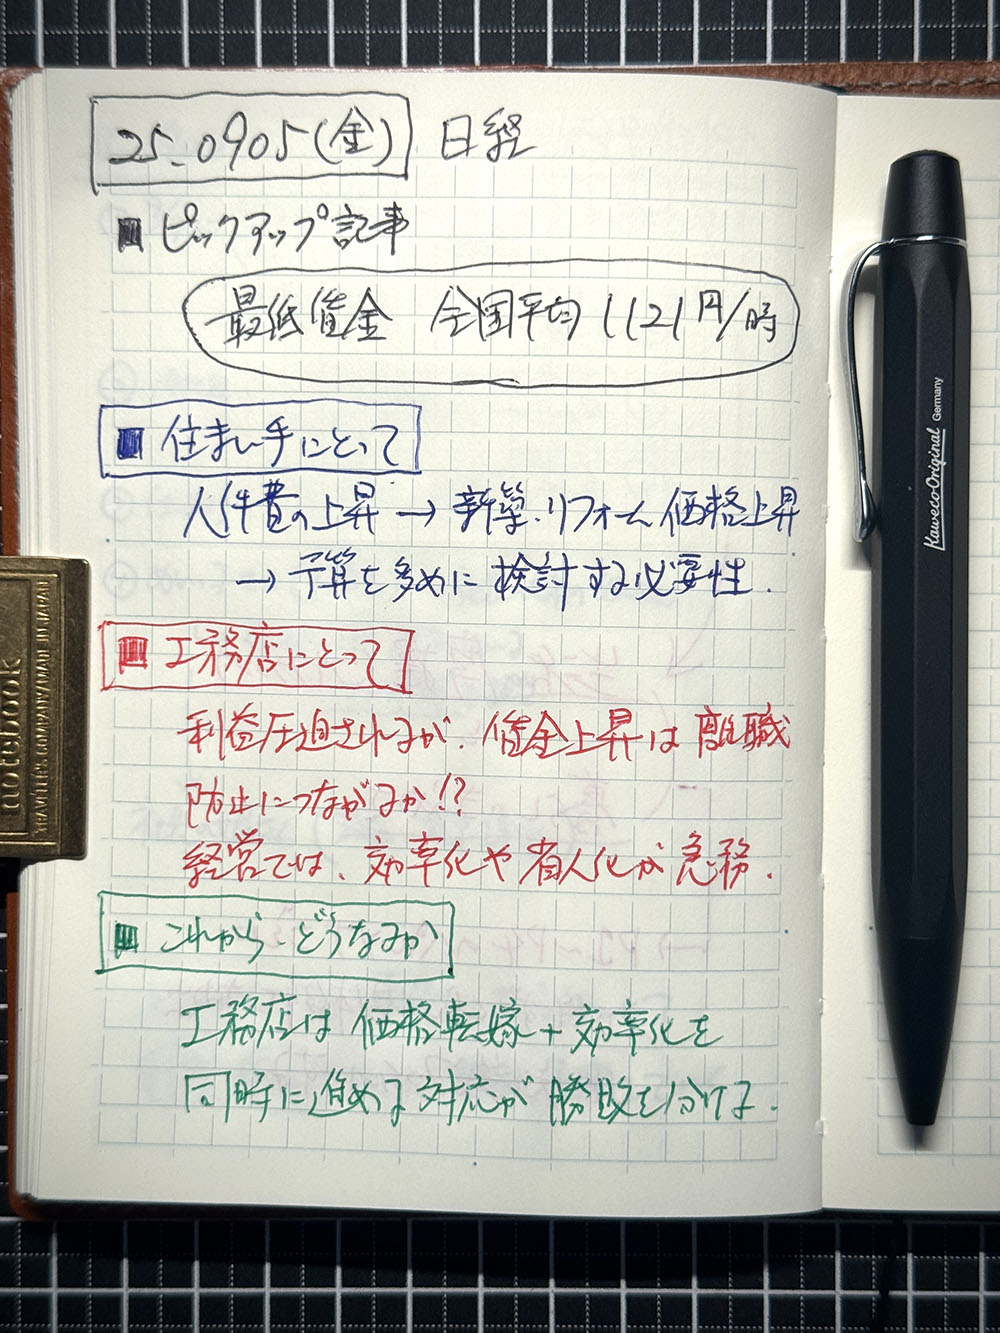 25.0905(金) 日経
■ピックアップ記事
最低賃金 全国平均 1121円/時
■住まい手にとって
人件費の上昇→新築・リフォーム価格上昇
→予算を多めに検討する必要性.
■工務店にとって
利益圧迫されるが、賃金上昇は離職
防止につながるか!?
経営では、効率化や省人化が急務.
■これから、どうなるか
工務店は価格転嫁+効率化を
同時に進める対応が勝敗を分ける.
Kaweco Original Germany
notebook
TRAVELER'S COMPANY MADE IN JAPAN